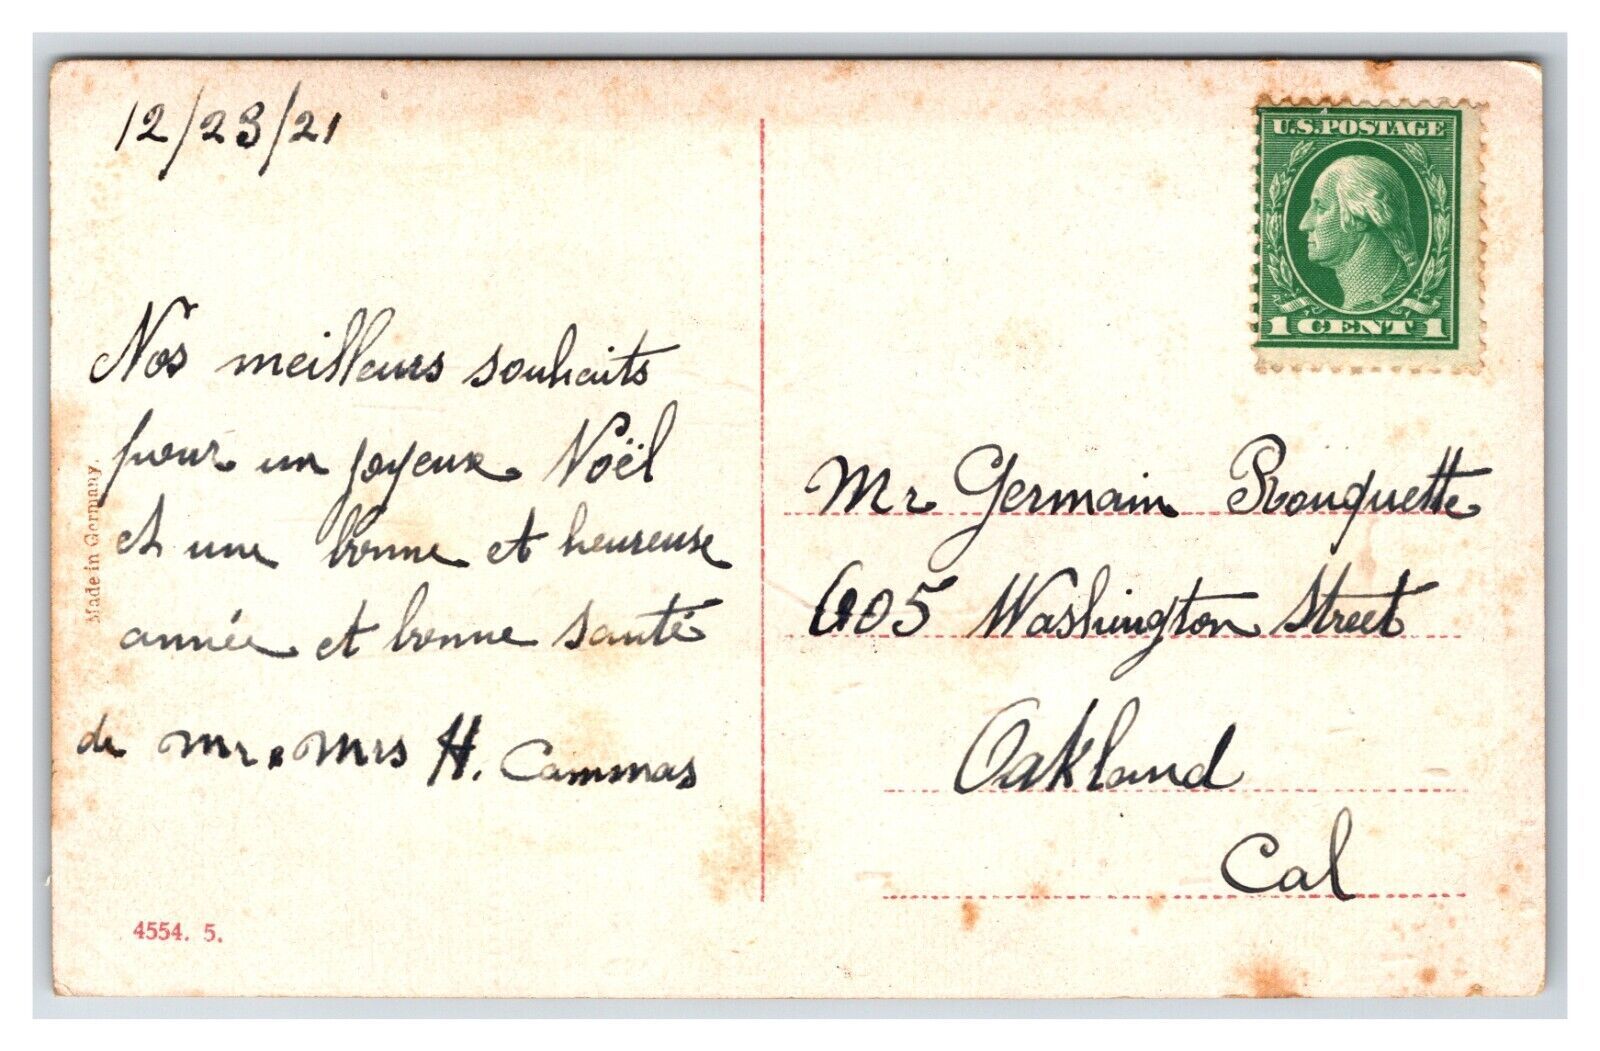 12/23/21
Nos meilleurs souhaits
pour un joyeux Noël
et une bonne et heureuse
année et bonne santé
de Mr. Mrs H. Cammas
Made in Germany.
4554. 5.
U.S. POSTAGE
1 CENT 1
Mr Germain Rouquette
605 Washington Street
Oakland
Cal